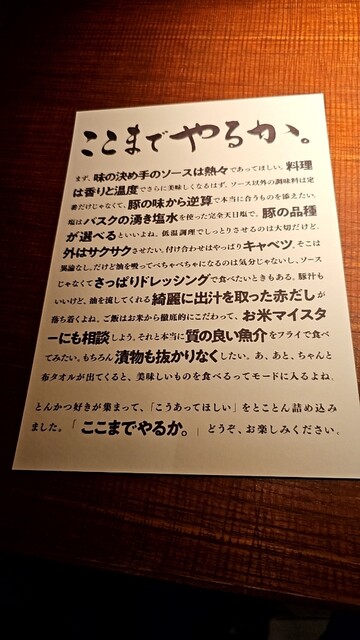 ここまでやるか。
まず、味の決め手のソースは熱々であってほしい。料理
は香りと温度でさらに美味しくなるはず。ソース以外の調味料は定
番だけじゃなくて、豚の味から逆算で本当に合うものを添えたい。
塩はバスクの湧き塩水を使った完全天日塩で。豚の品種
が選べるといいよね。低温調理でしっとりさせるのは大切だけど、
外はサクサクさせたい。付け合わせはやっぱりキャベツ。そこは
異論なし。だけど油を吸ってべちゃべちゃになるのは気分じゃないし、ソース
じゃなくてさっぱりドレッシングで食べたいときもある。豚汁も
いいけど、油を流してくれる綺麗に出汁を取った赤だしが
落ち着くよね。ご飯はお米から徹底的にこだわって、お米マイスタ
ーにも相談しよう。それと本当に質の良い魚介をフライで食べ
てみたい。もちろん漬物も抜かりなくしたい。あ、あと、ちゃんと
布タオルが出てくると、美味しいものを食べるってモードに入るよね。
とんかつ好きが集まって、「こうあってほしい」をとことん詰め込み
ました。「ここまでやるか。」どうぞ、お楽しみください。